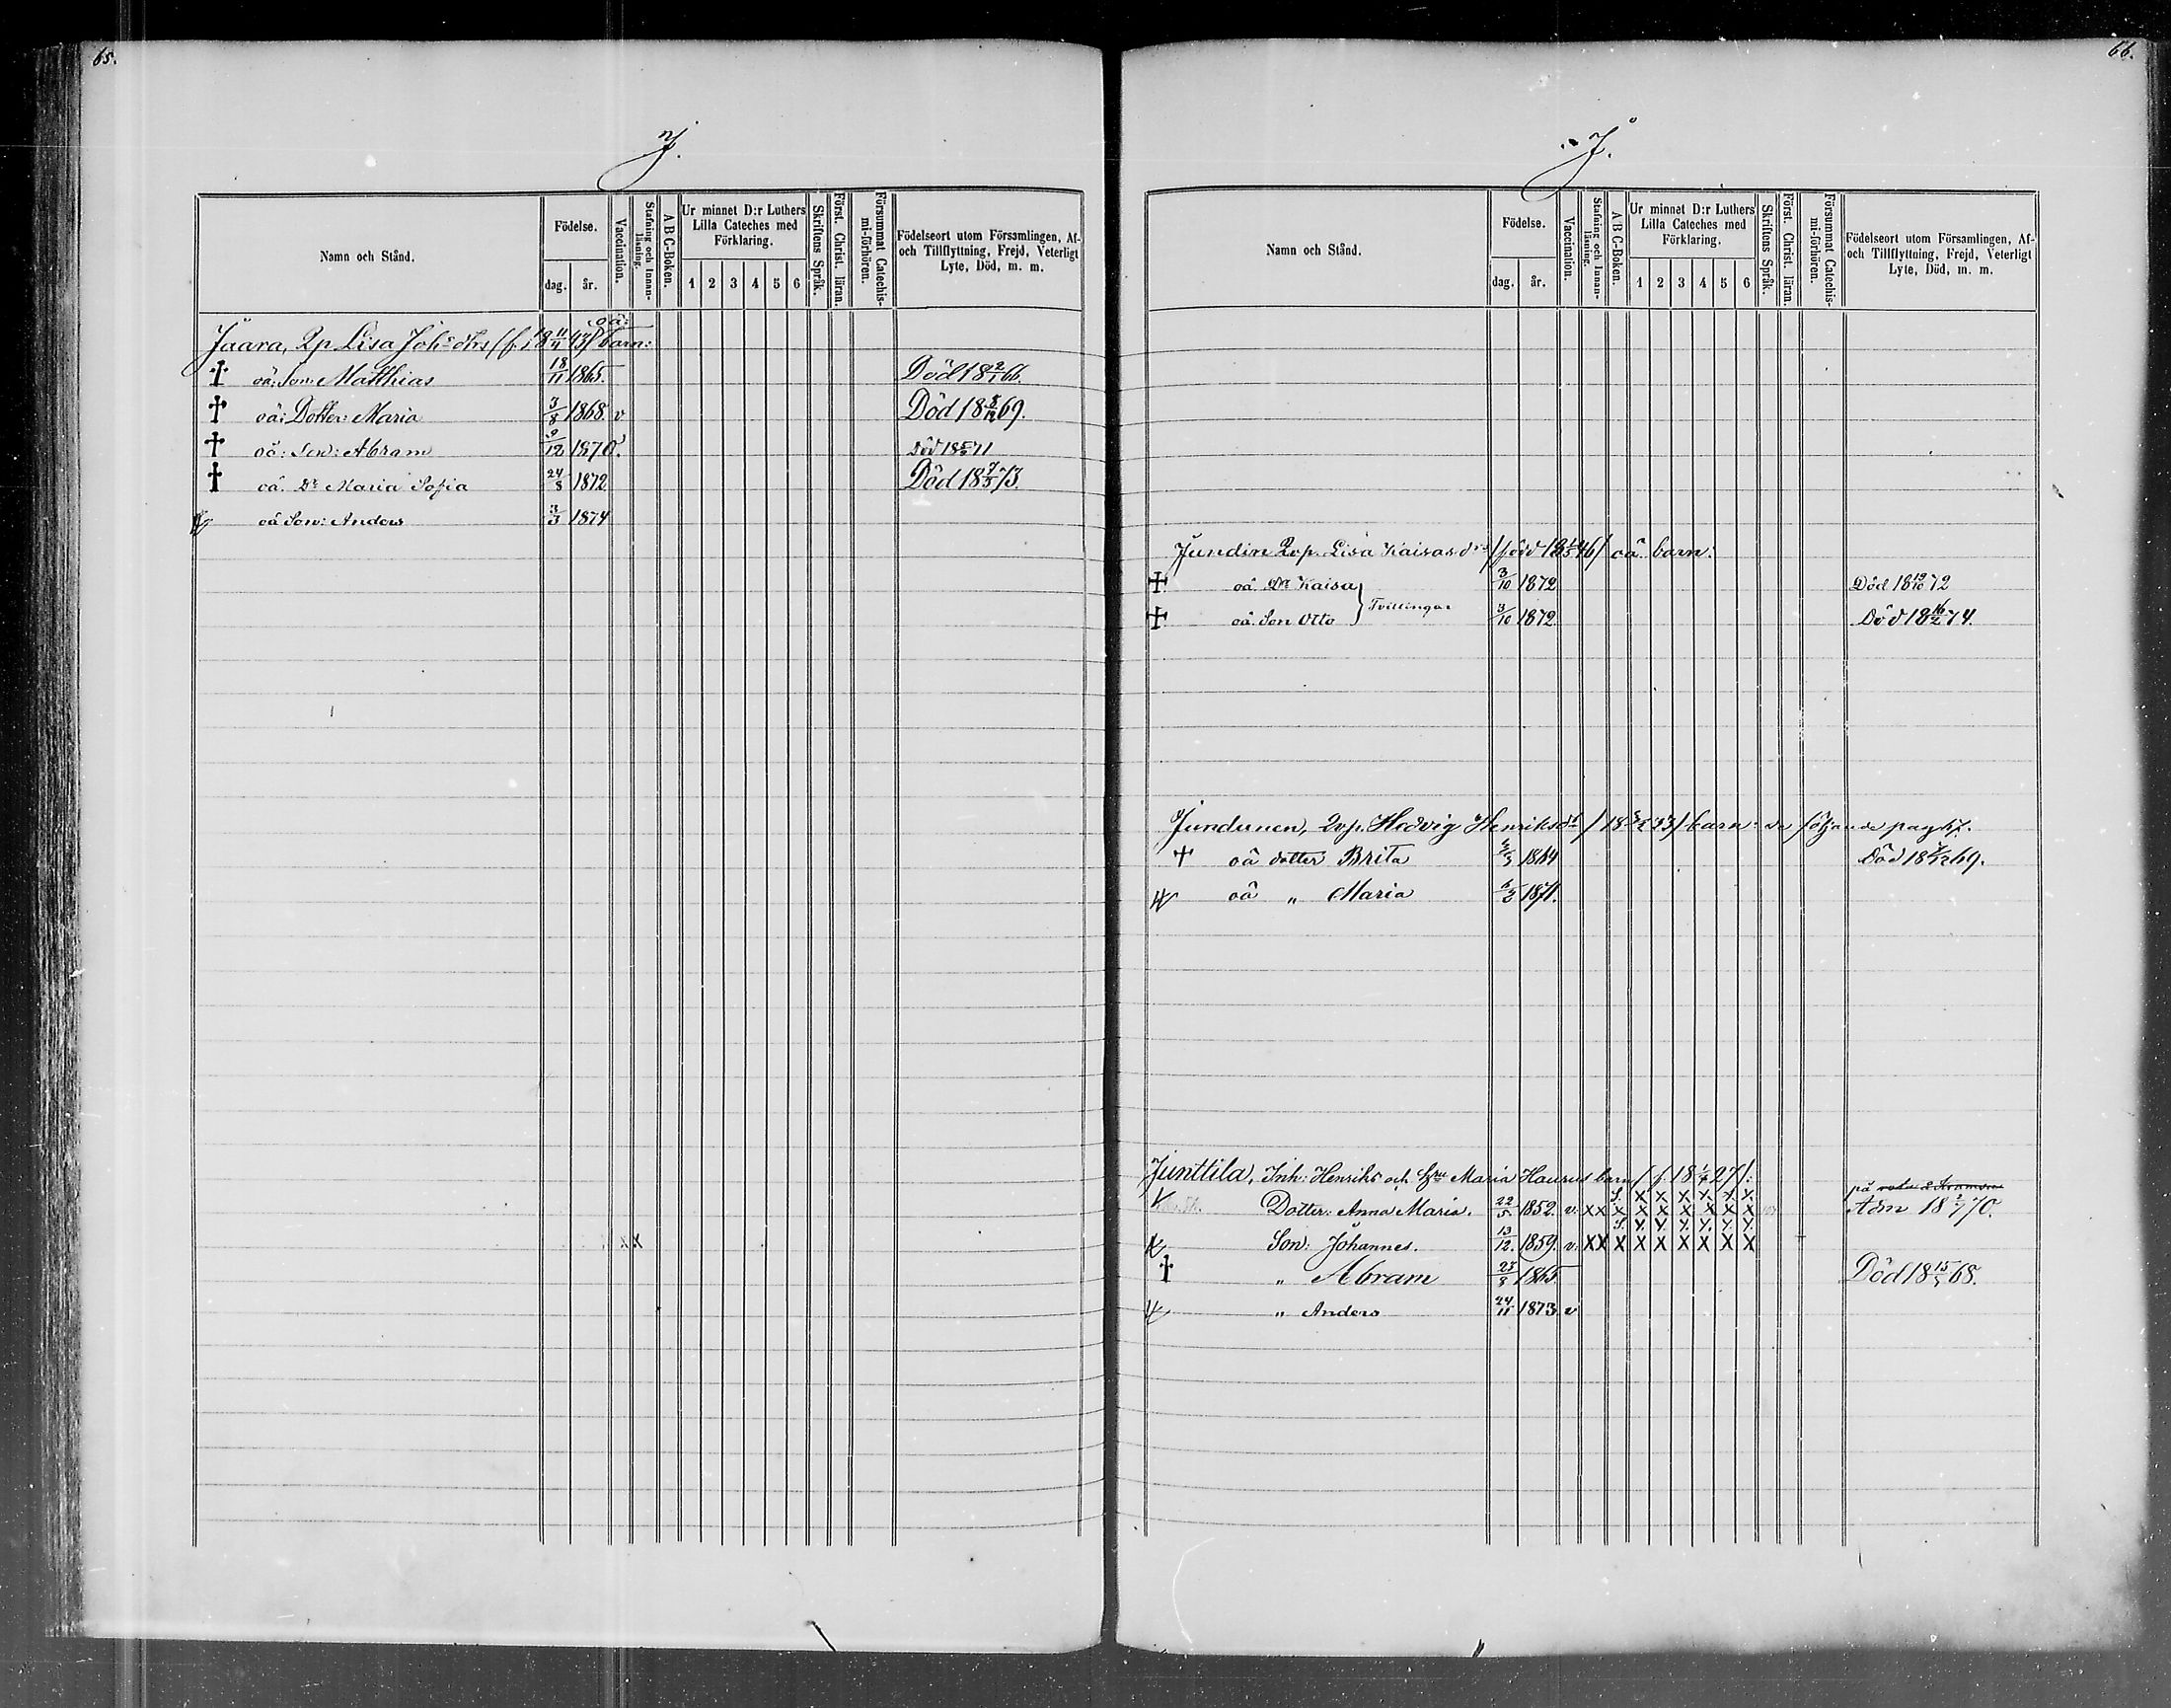 65.
J.
Namn och Stånd.
Födelse.
dag.
år.
Vaccination.
Stafning och Innan-
läsning.
A B C-Boken.
Ur minnet D:r Luthers
Lilla Cateches med
Förklaring.
1 2 3 4 5 6
Skriftens Språk.
Först. Christ. läran.
Försummat Catechis-
mi-förhören.
Födelseort utom Församlingen, Af-
och Tillflyttning, Frejd, Veterligt
Lyte, Död, m. m.
oä:
Jaara, Qp Lisa Joh:s dtrs (f. 18 11/4 43) barn:
oä: Son: Matthias 18/11 1865. Död 18 2/1 66.
oä: Dotter: Maria 3/8 1868. v Död 18 8/12 69.
oä: Son: Abram 9/12 1870. Död 18 71
oä. Dr Maria Sofia 24/8 1872 Död 18 7/5 73.
oä Son: Anders 3/3 1874
X X
66.
J.
Namn och Stånd.
Födelse.
dag.
år.
Vaccination.
Stafning och Innan-
läsning.
A B C-Boken.
Ur minnet D:r Luthers
Lilla Cateches med
Förklaring.
1 2 3 4 5 6
Skriftens Språk.
Först. Christ. läran.
Försummat Catechis-
mi-förhören.
Födelseort utom Församlingen, Af-
och Tillflyttning, Frejd, Veterligt
Lyte, Död, m. m.
Jundin Qvp. Lisa Kaisas drs / född 18 46 / oä barn:
oä. Dr Kaisa 3/10 1872 Död 18 19/10 72
Tvillingar
oä. Son Otto 3/10 1872. Död 18 16/2 74.
Jundunen, Qvp. Hedvig Henriksdr / 18 43 / barn: se följande pag 67.
oä dotter Brita 1864 Död 18 69.
oä " Maria 6/2 1871.
Junttila, Inh: Henriks och hu Maria barn / f. 18 1/4 27 /:
på
S. X X X X X X
Dotter: Anna Maria. 22/5 1852. v. X X X X X X X X X Adm 18 2/7 70.
S. X X X X X X
Son: Johannes. 13/12. 1859. v. X X X X X X X X X
" Abram 23/8 1865. Död 18 15/5 68.
" Anders 24/11 1873. v